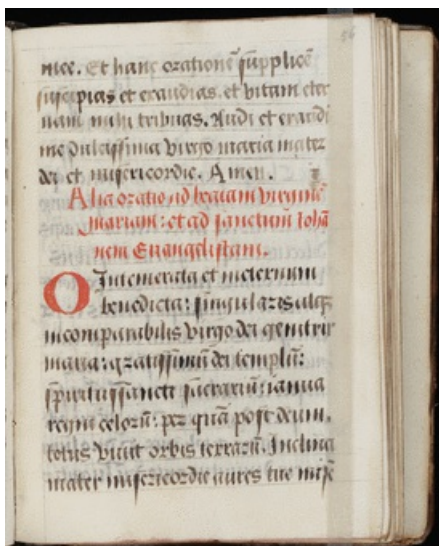 mee. Et hanc orationē supplicē
suscipias et exaudias. et vitam eter
nam mihi tribuas. Audi et exaudi
me dulcissima virgo maria mater
dei et misericordie. Amen.
Alia oratio ad beatam virginē
mariam: et ad sanctum Iohā
nem Euangelistam.
O Intemerata et ineternum
benedicta: singularis atqȝ
incomparabilis virgo dei genitrix
maria: gratissimū dei templū:
spiritussancti sacrariū: ianua
regni celorū: per quā post deum,
totus viuit orbis terrarū. Inclina
mater misericordie aures tue